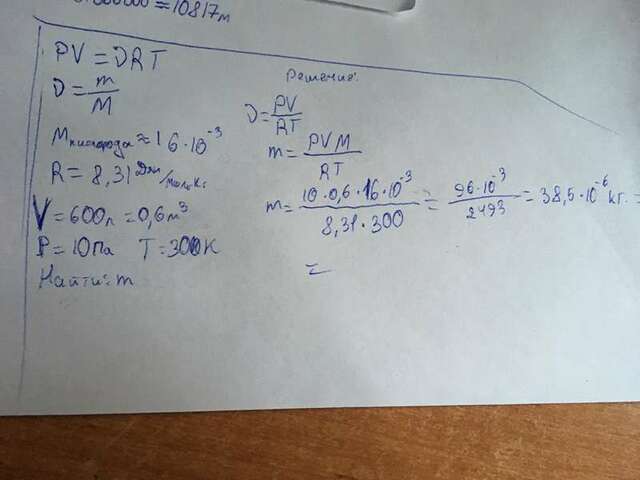 000000 = 10817м
PV = DRT
D = m/M
Mкислорода = 16·10⁻³
R = 8,31 Дж/моль·К
V = 600л = 0,6м³
P = 10Па T = 300К
Найти: m
Решение:
D = PV/RT
m = PVM/RT
m = 10·0,6·16·10⁻³/8,31·300 = 96·10⁻³/2493 = 38,5·10⁻⁶ кг.
=